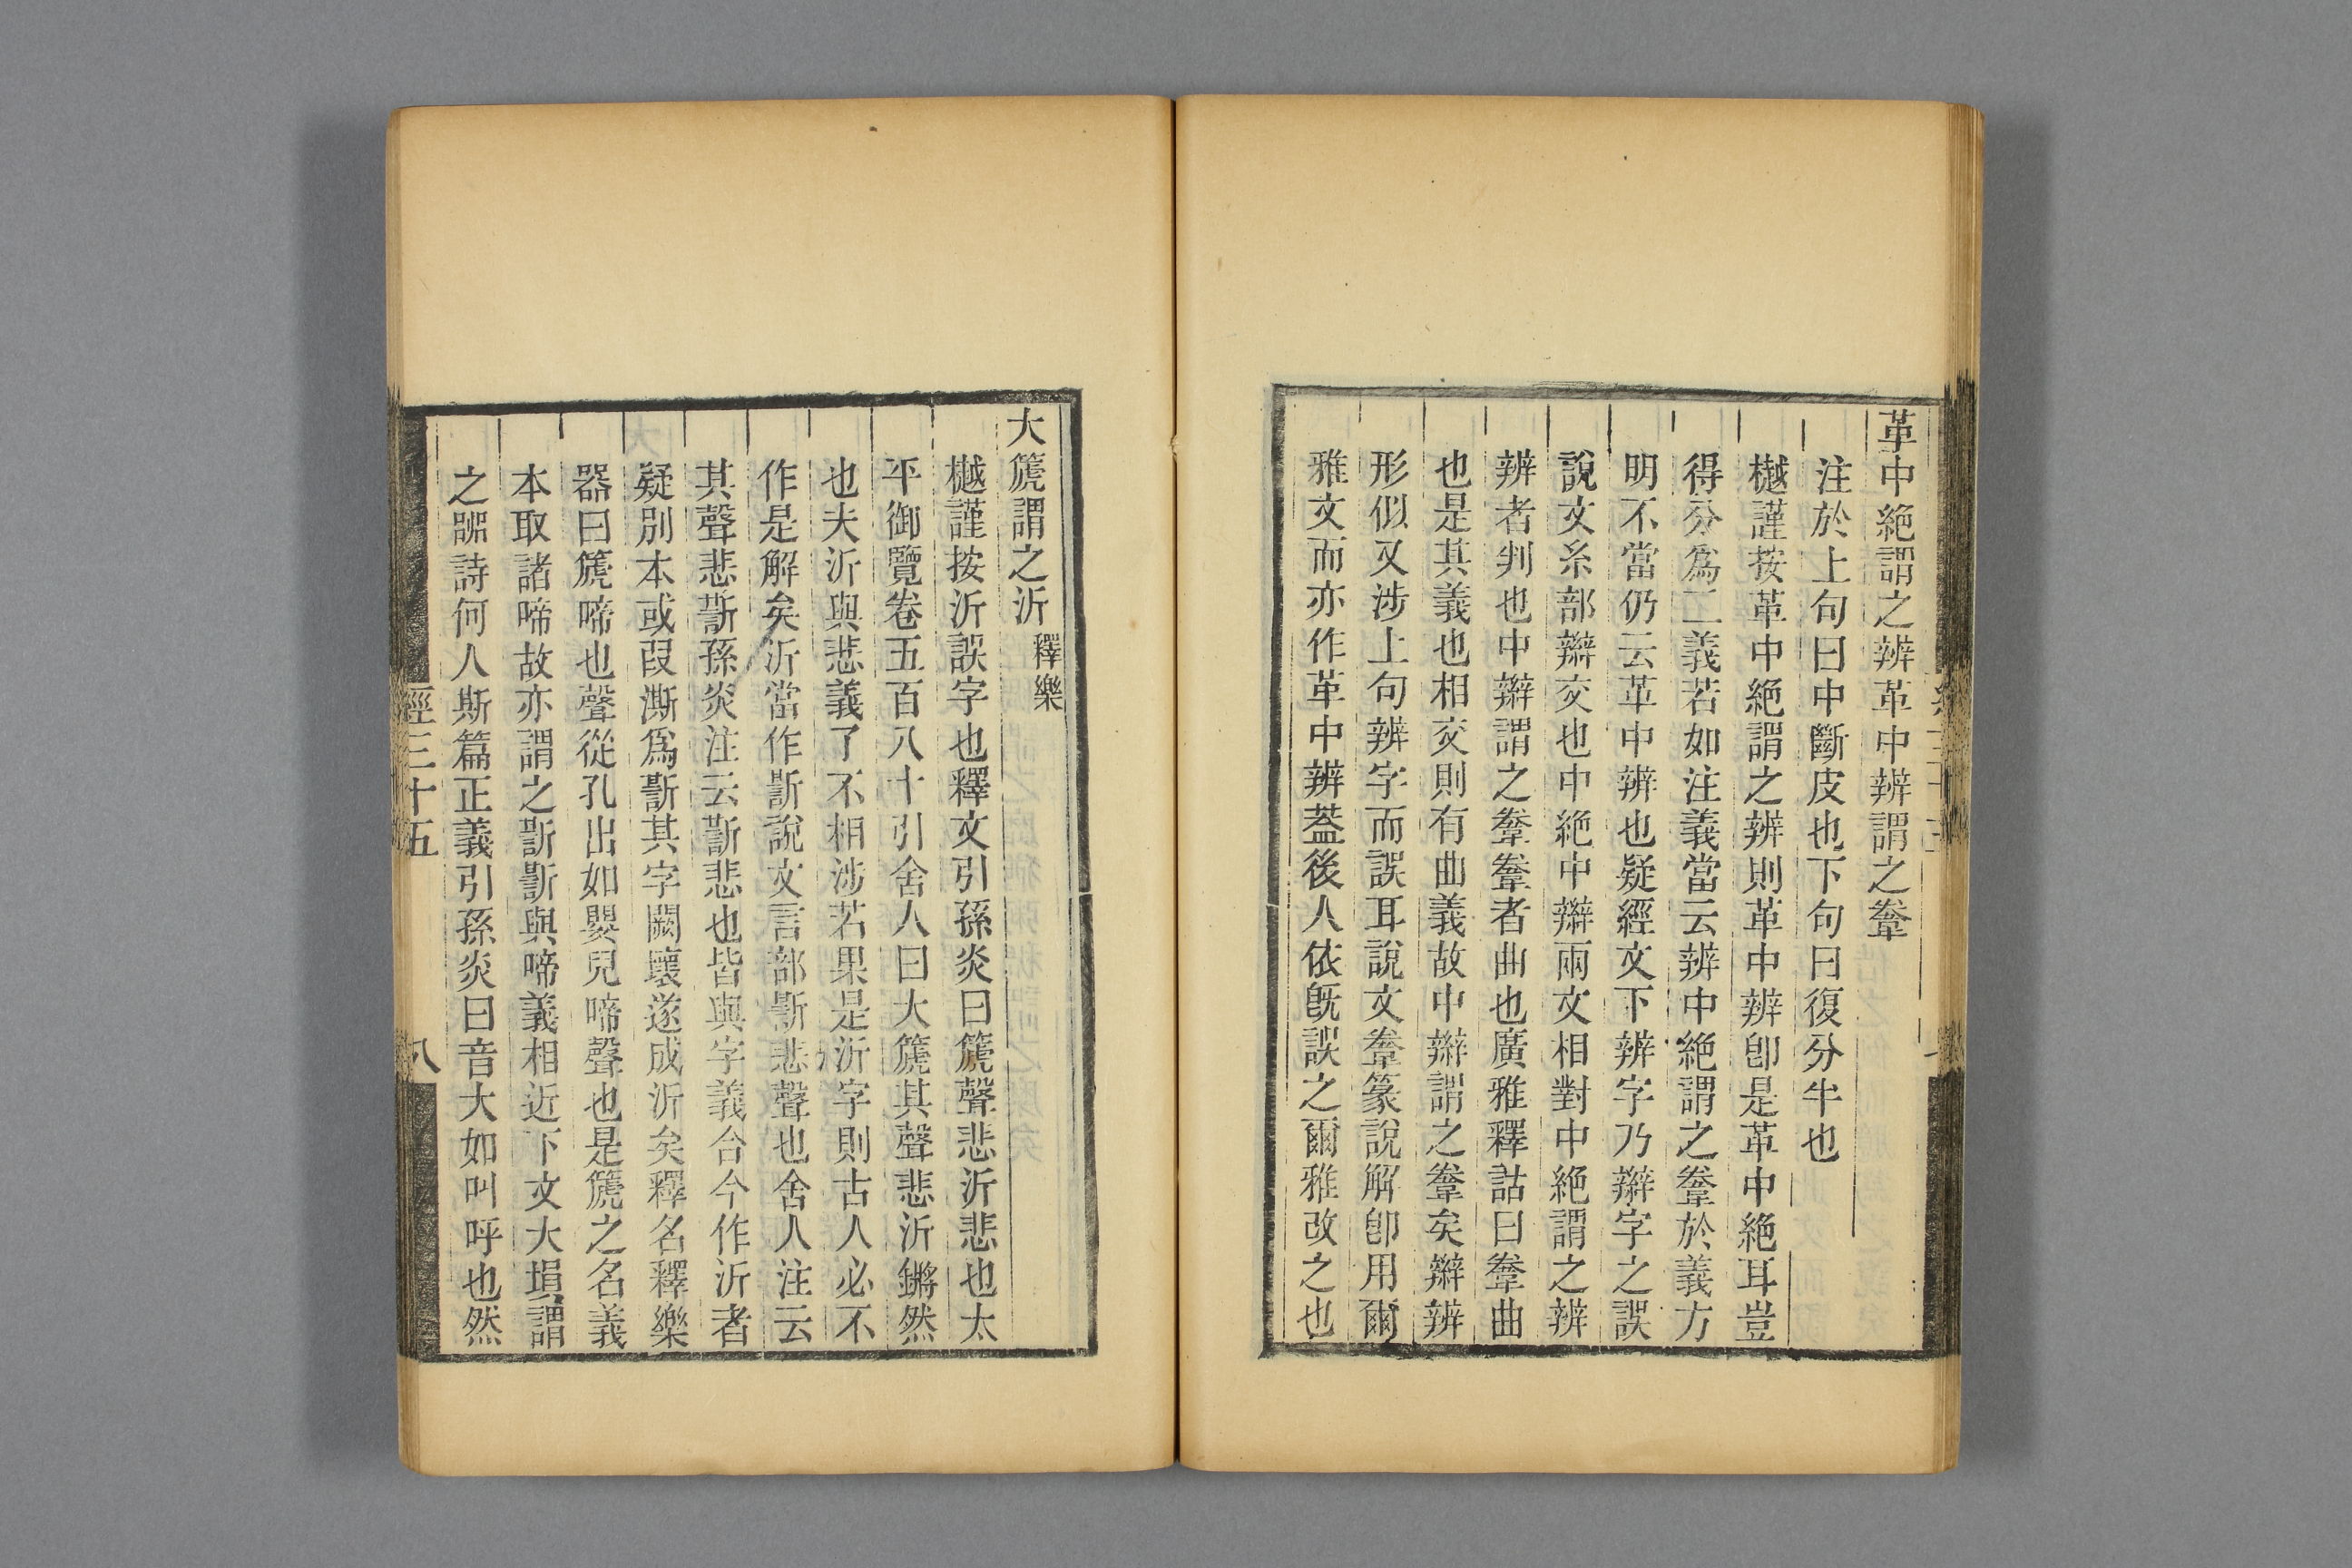 革中絶謂之辨革中辨謂之韏
注於上句曰中斷皮也下句曰復分半也
樾謹按革中絶謂之辨則革中辨卽是革中絶耳豈
得分爲二義若如注義當云辨中絶謂之韏於義方
明不當仍云革中辨也疑經文下辨字乃辮字之誤
說文糸部辮交也中絶中辮兩文相對中絶謂之辨
辨者判也中辮謂之韏韏者曲也廣雅釋詁曰韏曲
也是其義也相交則有曲義故中辮謂之韏矣辮辨
形似又涉上句辨字而誤耳說文韏篆說解卽用爾
雅文而亦作革中辨蓋後人依旣誤之爾雅改之也
大箎謂之沂 釋樂
樾謹按沂誤字也釋文引孫炎曰箎聲悲沂悲也太
平御覽卷五百八十引舍人曰大箎其聲悲沂鏘然
也夫沂與悲義了不相涉若果是沂字則古人必不
作是解矣沂當作㪿說文言部㪿悲聲也舍人注云
其聲悲㪿孫炎注云㪿悲也皆與字義合今作沂者
疑別本或叚澌爲㪿其字闕壞遂成沂矣釋名釋樂
器曰箎啼也聲從孔出如嬰兒啼聲也是箎之名義
本取諸啼故亦謂之㪿㪿與啼義相近下文大塤謂
之詩何人斯篇正義引孫炎曰音大如叫呼也然
經三十五
八